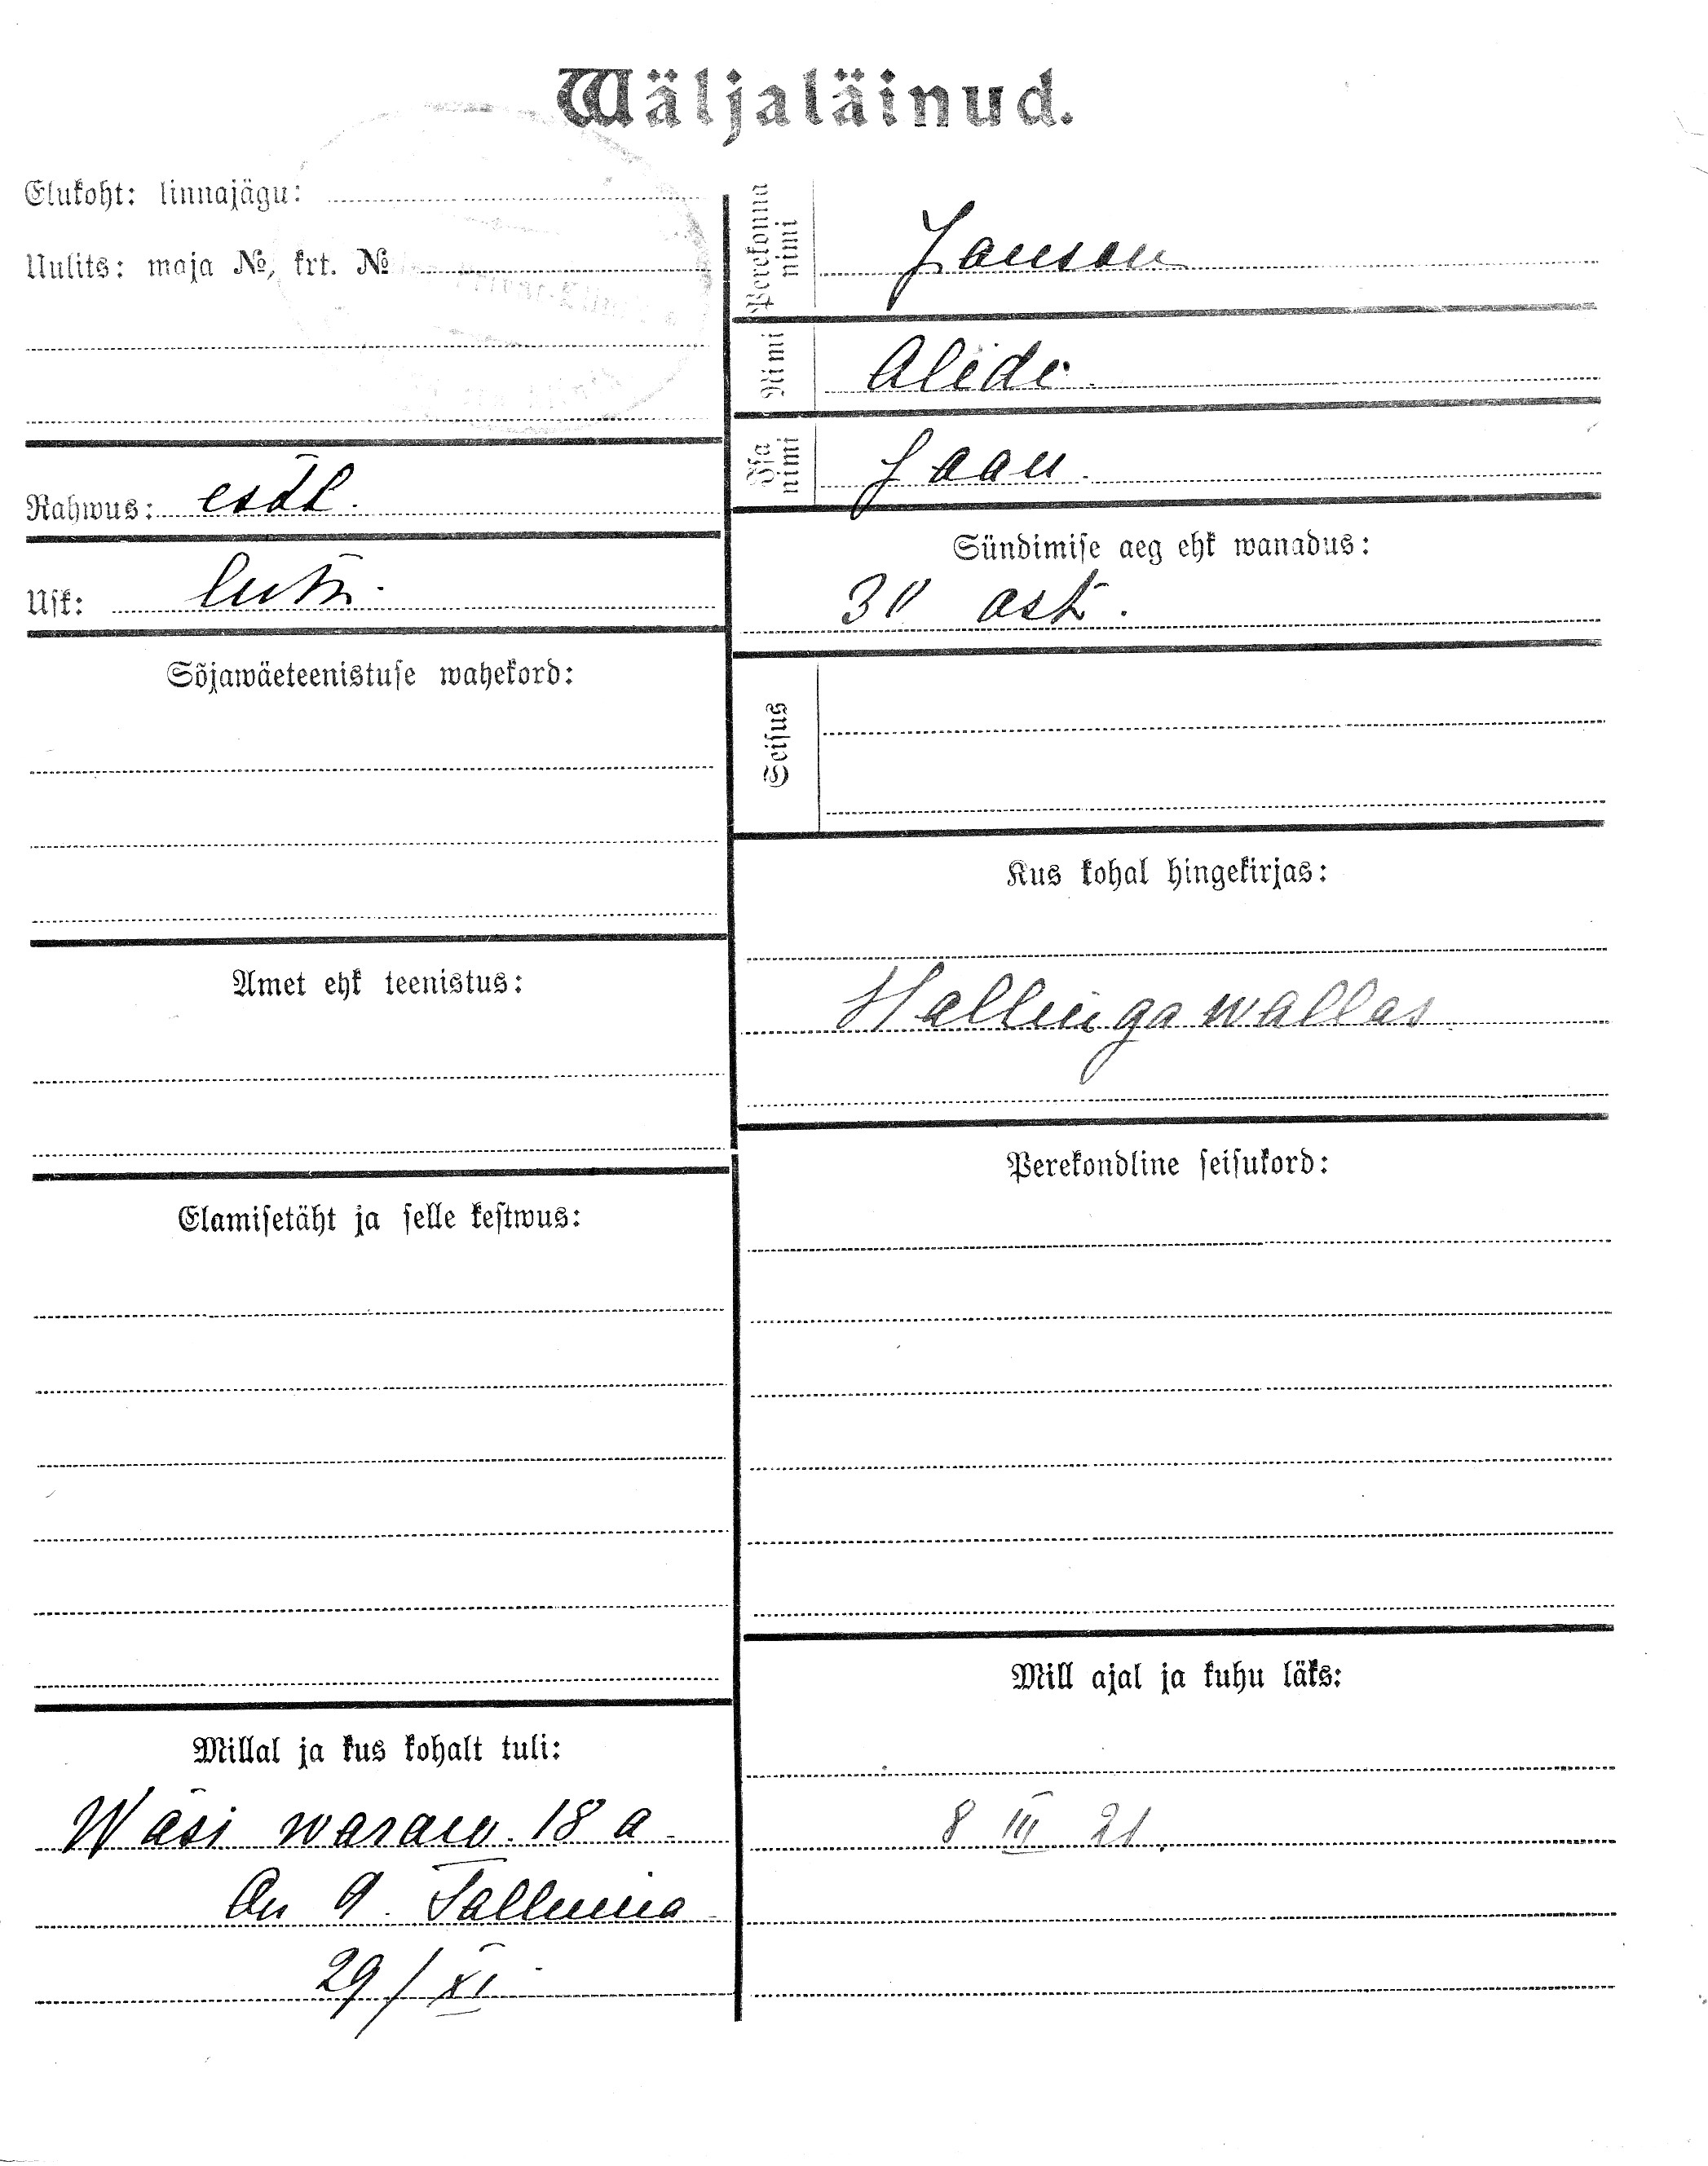 Wäljaläinud.
Elukoht: linnajägu:
Uulits: maja №, krt. №
Rahwus: eestl.
Usk: lutr.
Sõjawäeteenistuse wahekord:
Amet ehk teenistus:
Elamisetäht ja selle kestwus:
Millal ja kus kohalt tuli:
18 a
9. Tallinna
29/XI
Perekonna nimi Janson
Nimi Alide
Isa nimi Jaan
Sündimise aeg ehk wanadus:
30 ast.
Seisus
Kus kohal hingekirjas:
Hallinga wallas
Perekondline seisukord:
Mill ajal ja kuhu läks:
8 III 21.